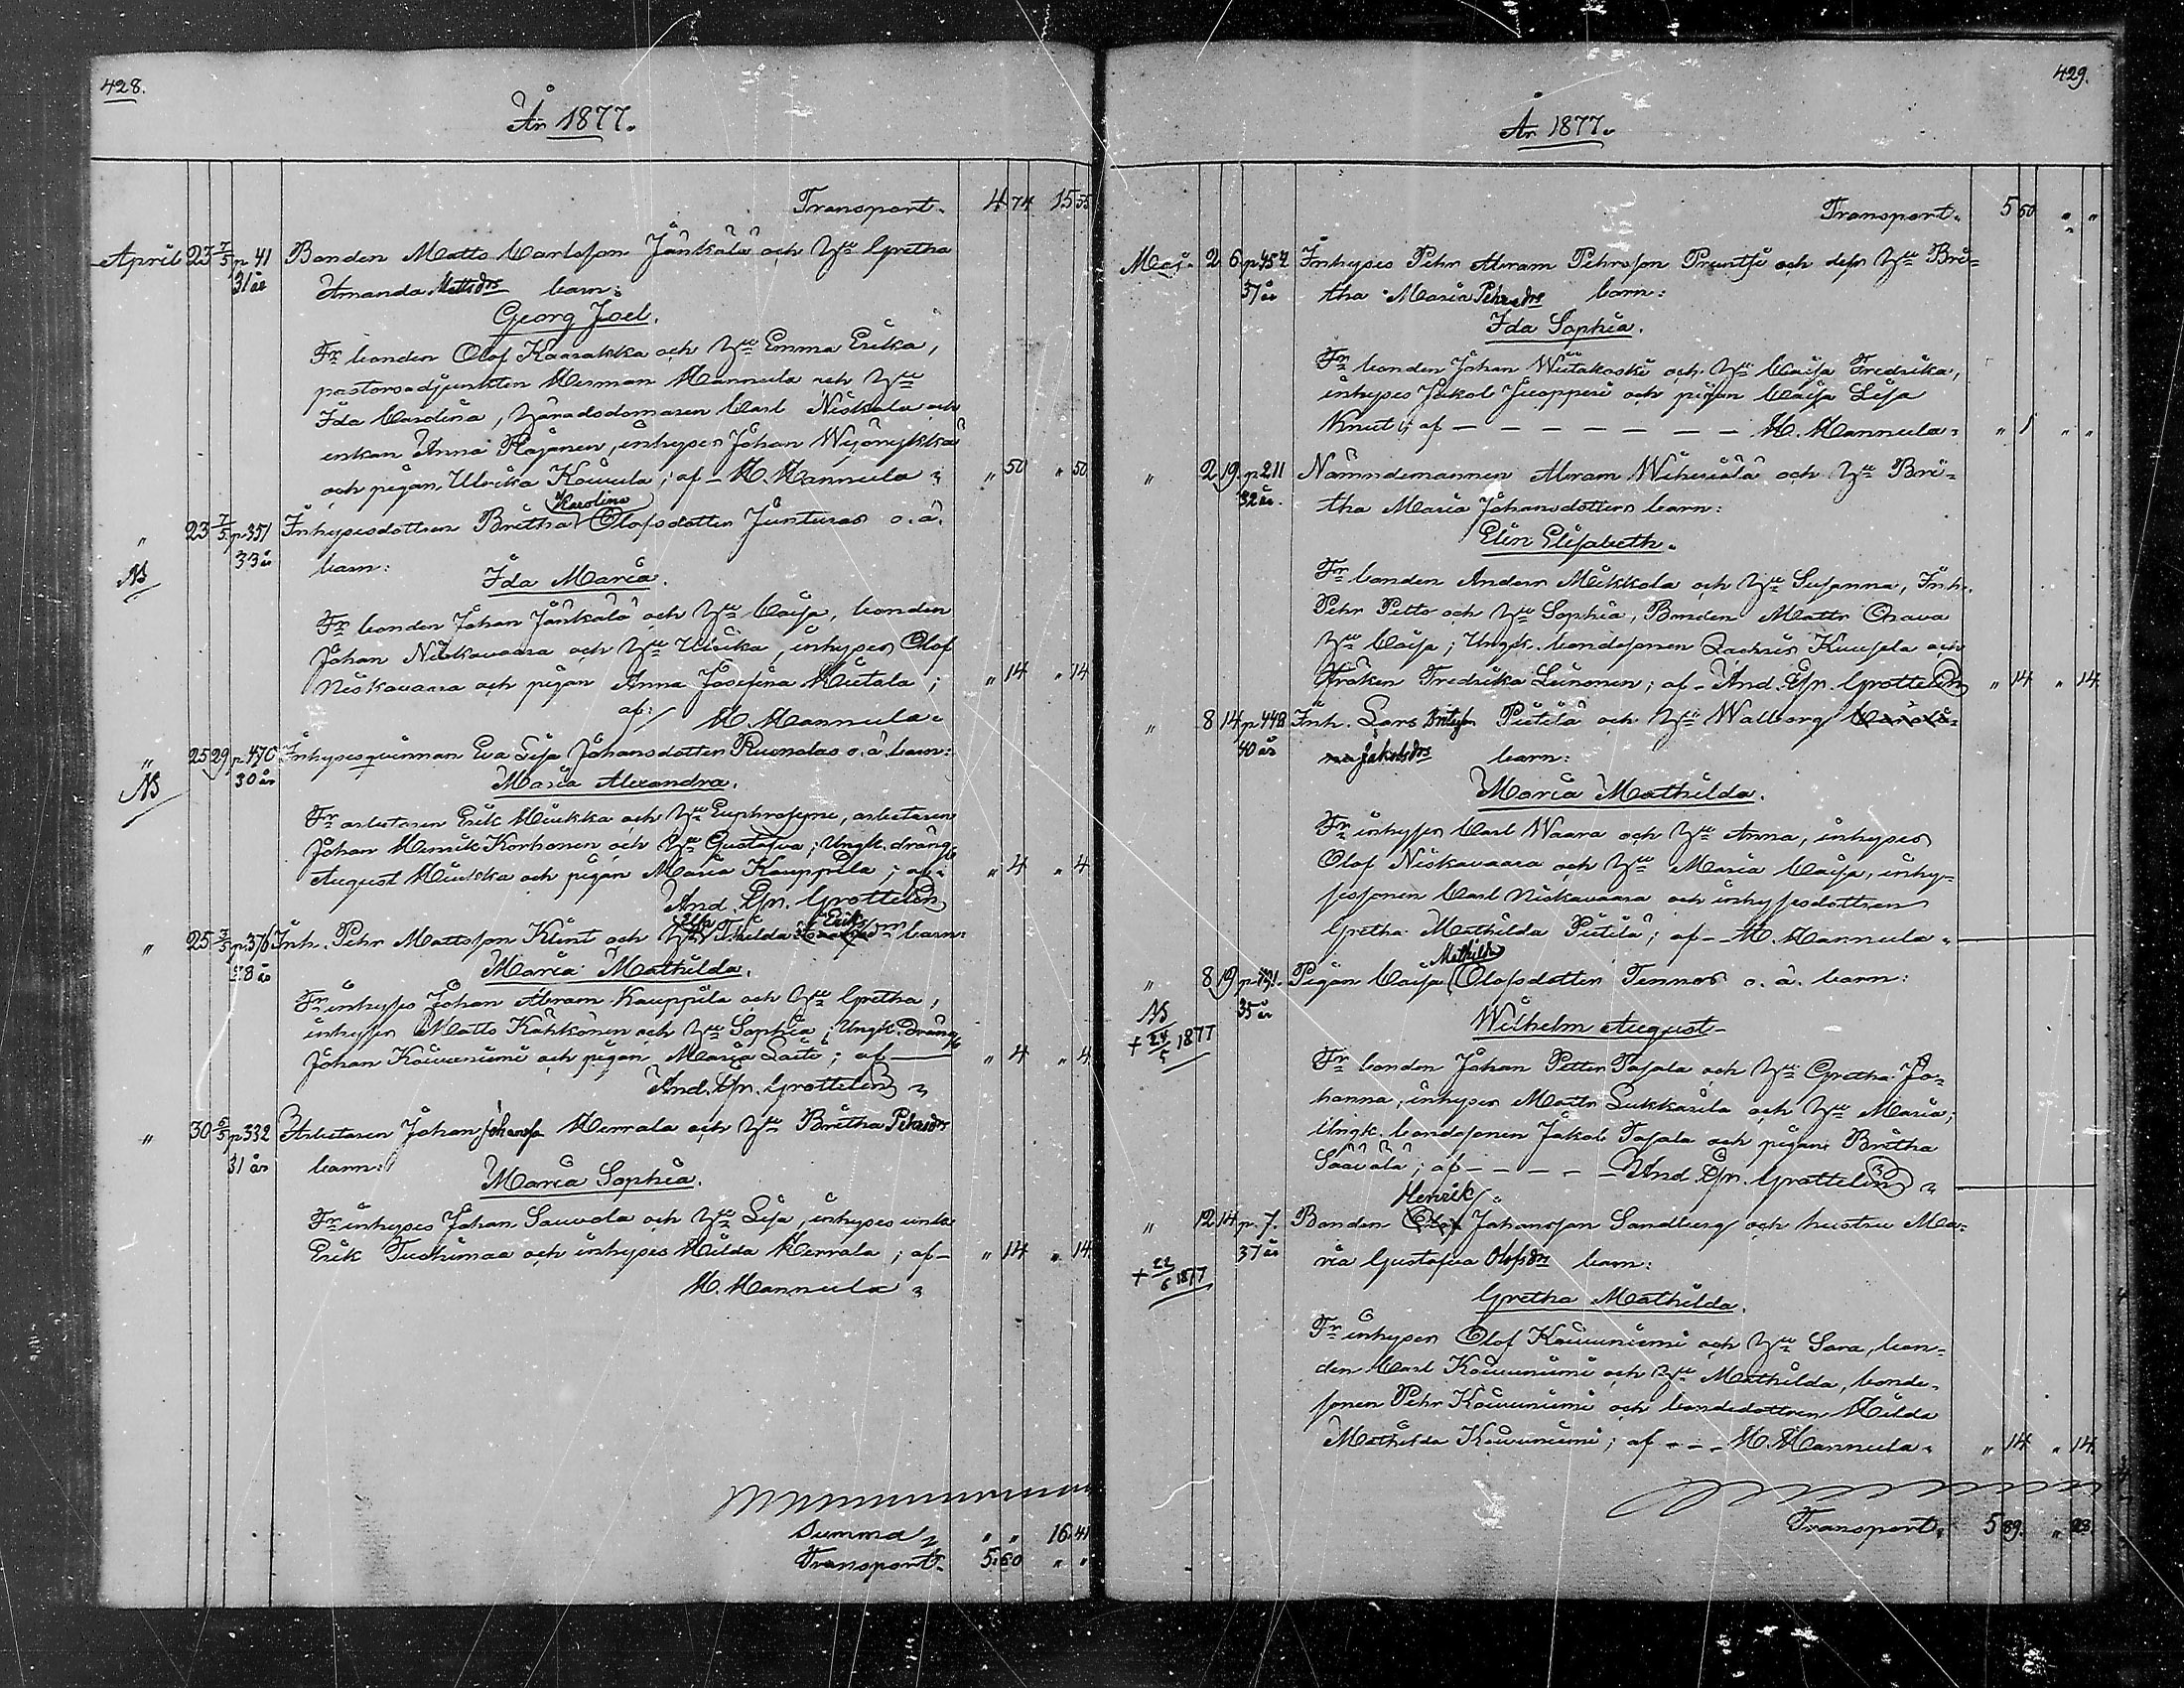 428.
År 1877.
Transport. 4 74 15 35
April 23 7/5 p. 41 Bonden Matts Carlsson Jänkälä och H:u Gretha
31 år Amanda Mattsdr barn:
Georg Joel.
Fr bonden Olof Kaarakka och H:u Emma Erika,
pastorsadjunkten Herman Mannula och H:u
Ida Carolina, häradsdomaren Carl Niskala och
enkan Anna Rajanen, inhyses Johan
och pigan Ulrika Koivula; af – H. Mannula „ „ 50 „ 50
Karolina
„ 23 7/5 p. 351 Inhysesdottren Britha Olofsdotter Junturas o. ä.
NB 33 år barn: Ida Maria.
Fr bonden Johan Jänkälä och H:u Caisa, bonden
Johan Niskavaara och H:u Ulrika, inhyses Olof
Niskavaara och pigan Anna Josefina Hietala; „ 14 „ 14
af: H. Mannula.
„ 25 29 p. 470 Inhysesqvinnan Eva Lisa Johansdotter Ruonalas o. ä. barn:
NB 30 år Maria Alexandra.
Fr arbetaren Erik Miukka och H:u Euphrosyne, arbetaren
Johan Henrik Korhonen och H:u Gustafva; Ungk. dräng
August Miukka och pigan Maria Kauppila; af „ 4 „ 4
And. Joh. Grottelin
Eriks
„ 25 3/5 p. 376 Inh. Pehr Mattsson Klint och H:u Thilda dr barn:
28 år Maria Mathilda.
Fr inhyses Johan Abram Kauppila och H:u Gretha,
inhyses Matts Kähkönen och H:u Sophia; Ungk. dräng
Johan Koivuniemi och pigan Maria Laiti; af — „ 4 „ 4
And. Joh. Grottelin „
„ 30 6/5 p. 332 Arbetaren Johan Johansson Herrala och H:u Britha Pehrsdr
31 år barn:
Maria Sophia.
Fr inhyses Johan Sauvola och H:u Lisa, inhyses enkl.
Erik Tuohimaa och inhyses Hilda Herrala; af – „ 14 „ 14
H. Mannula „
Summa „ „ 16 41
Transport. 5 60 „ „
429.
År 1877.
Transport. 5 60 „ „
Maj. 2 6 p. 457 Inhyses Pehr Abram Pehrsson Pruntsi och dess H:u Bri-
37 år tha Maria Pehrsdr barn:
Ida Sophia.
Fr bonden Johan Wiitakoski och H:u Caisa Fredrika,
inhyses Jakob Juopperi och pigan Caisa Lisa
Knuti; af – – – – – – – H. Mannula. „ 1 „ „
„ 2 19. p. 211 Nämndemannen Abram Wiheriälä och H:u Bri-
32 år. tha Maria Johansdotters barn:
Elin Elisabeth.
Fr bonden Anders Mikkola och H:u Susanna, Inh.
Pehr Petto och H:u Sophia, Bonden Matts Orava
H:u Caisa; Ungk. bondesonen Zachris Kuusela och
Fröken Fredrika Leinonen; af – And. Joh. Grottelin „ 14 „ 14
„ 8 14 p. 448 Inh. Lars Pietilä och H:u Walborg Caroli-
40 år na Jakobsdr barn:
Maria Mathilda.
Fr inhyses Carl Waara och H:u Anna, inhyses
Olof Niskavaara och H:u Maria Caisa, inhy-
sessonen Carl Niskavaara och inhysesdottren
Gretha Mathilda Pietilä; af – H. Mannula.
Mathilda
„ 8 19 Pigan Caisa Olofsdotter Tennos o. ä. barn:
NB 35 år
+ 24/5 1877 Wilhelm August
Fr bonden Johan Petter Tapala och H:u Gretha Jo-
hanna, inhyses Matts Lukkarila och H:u Maria;
Ungk. bondesonen Jakob Tapala och pigan Britha
Säävälä; af – – – – And. Joh. Grottelin „
Henrik
„ 12 14 p. 7. Bonden Olof Johansson Sandberg och hustru Ma-
37 år ria Gustafva Olofsdr barn:
+ 22/6 1877
Gretha Mathilda.
Fr inhyses Olof Koivuniemi och H:u Sara, bon-
den Carl Koivuniemi och H:u Mathilda, bonde-
sonen Pehr Koivuniemi och bondedottren Hilda
Mathilda Koivuniemi; af – – – H. Mannula. „ 14 „ 14.
Transport. 5 89. „ 28.